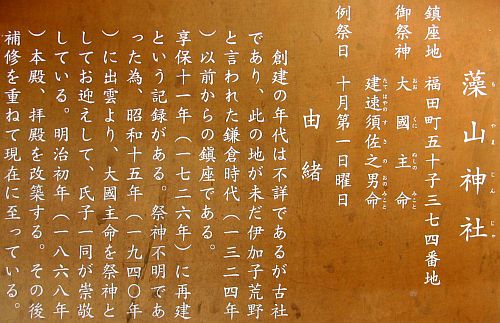 藻山神社
鎮座地　福田町五十子三七四番地
御祭神　大國主命
建速須佐之男命
例祭日　十月第一日曜日
由緒
創建の年代は不詳であるが古社
であり、此の地が未だ伊加子荒野
と言われた鎌倉時代（一三二四年
）以前からの鎮座である。
享保十一年（一七二六年）に再建
という記録がある。祭神不明であ
った為、昭和十五年（一九四〇年
）に出雲より、大國主命を祭神と
してお迎えして、氏子一同が崇敬
している。明治初年（一八六八年
）本殿、拝殿を改築する。その後
補修を重ねて現在に至っている。